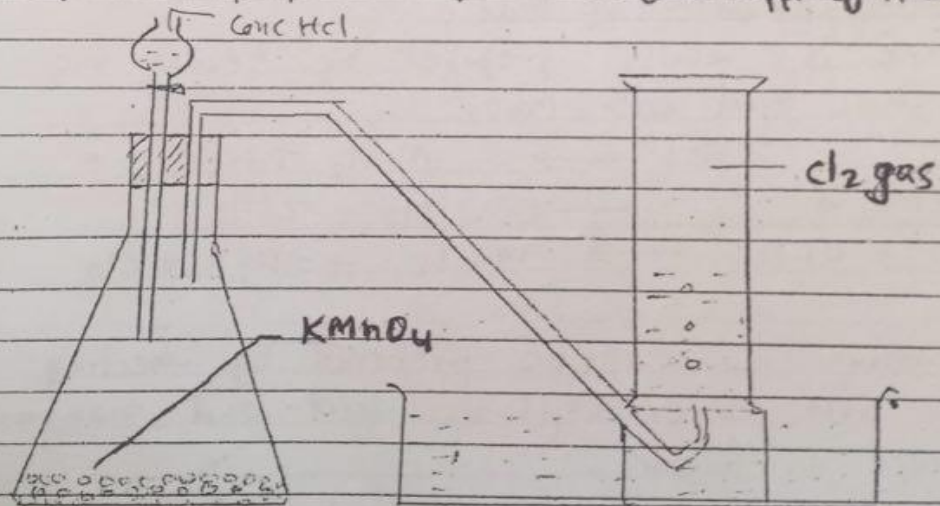 Conc HCl
Cl2 gas
KMnO4